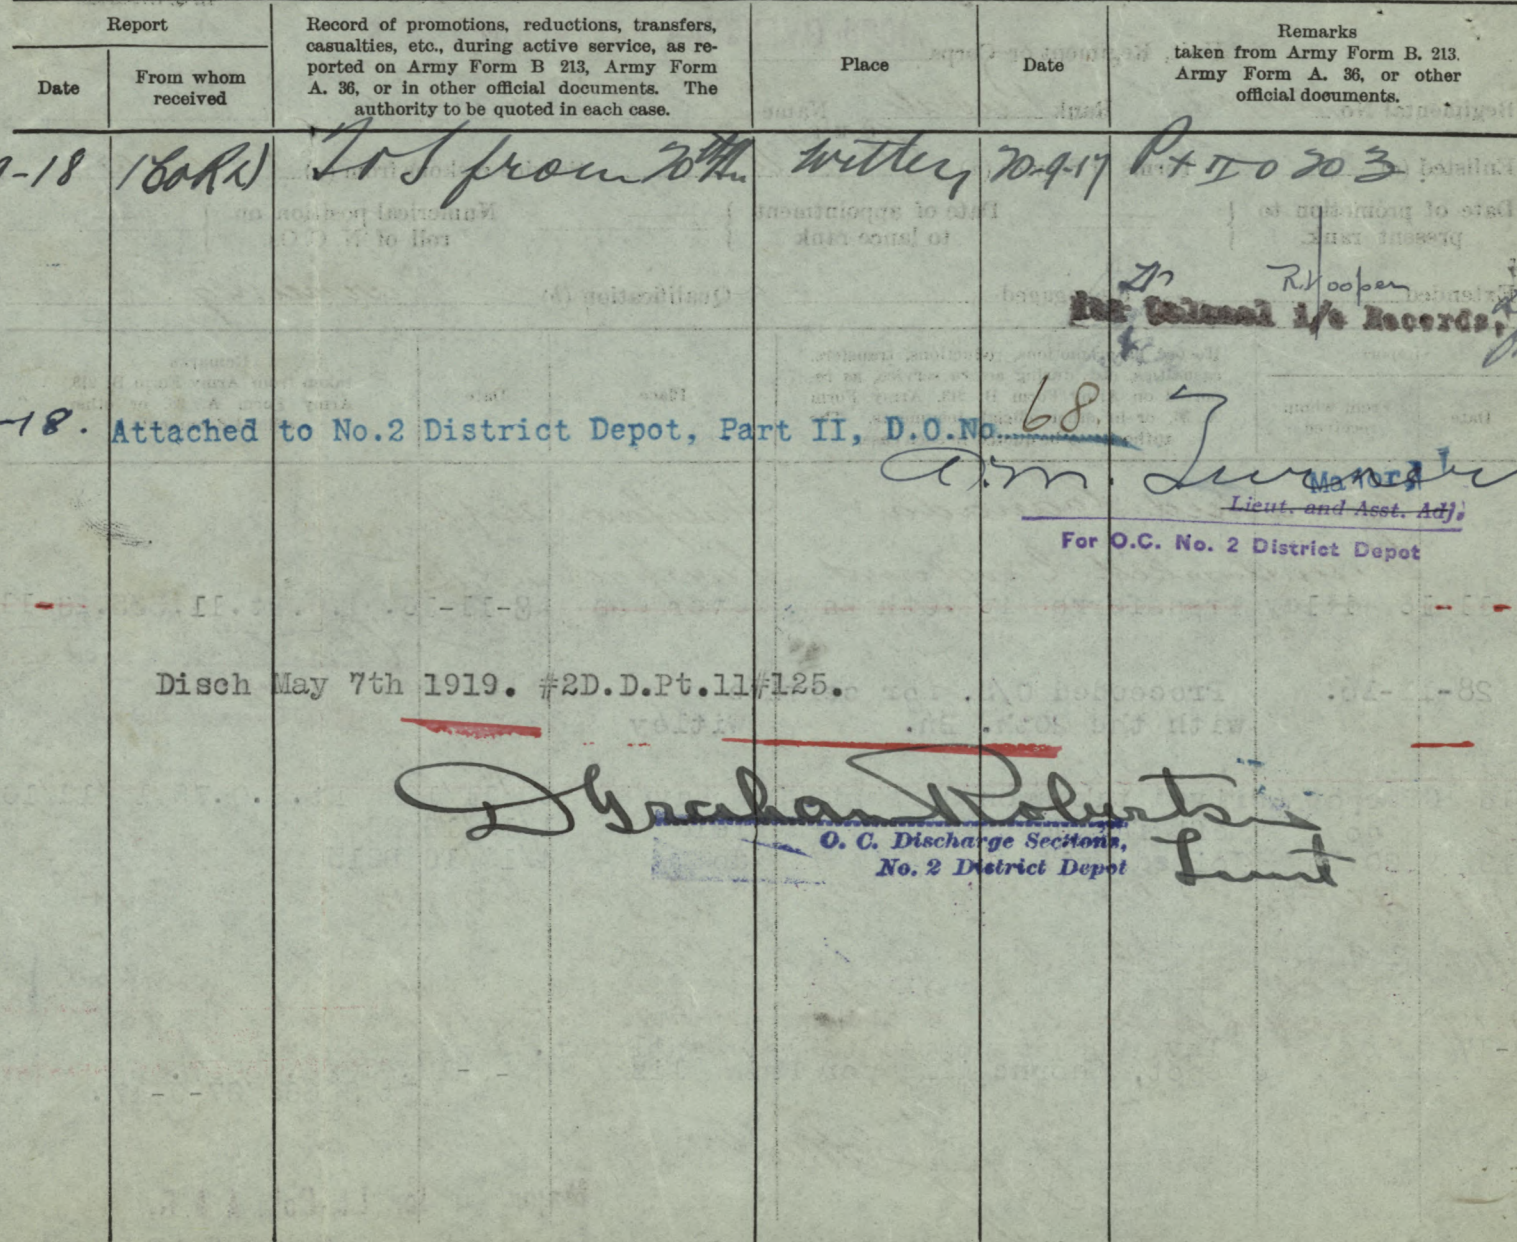 Report
Date
From whom
received
Record of promotions, reductions, transfers,
casualties, etc., during active service, as re-
ported on Army Form B 213, Army Form
A. 36, or in other official documents. The
authority to be quoted in each case.
Place
Date
Remarks
taken from Army Form B. 213.
Army Form A. 36, or other
official documents.
-18 TOS from 20th Bn Witley 20-9-17 Pt II O 203
R. Hooper
For Colonel i/c Records,
-18. Attached to No.2 District Depot, Part II, D.O.No. 68
A.M. Turner
Major,
Lieut. and Asst. Adj,
For O.C. No. 2 District Depot
Disch May 7th 1919. #2D.D.Pt.11#125.
D Graham Roberts
O. C. Discharge Secitons,
No. 2 District Depot
Lieut